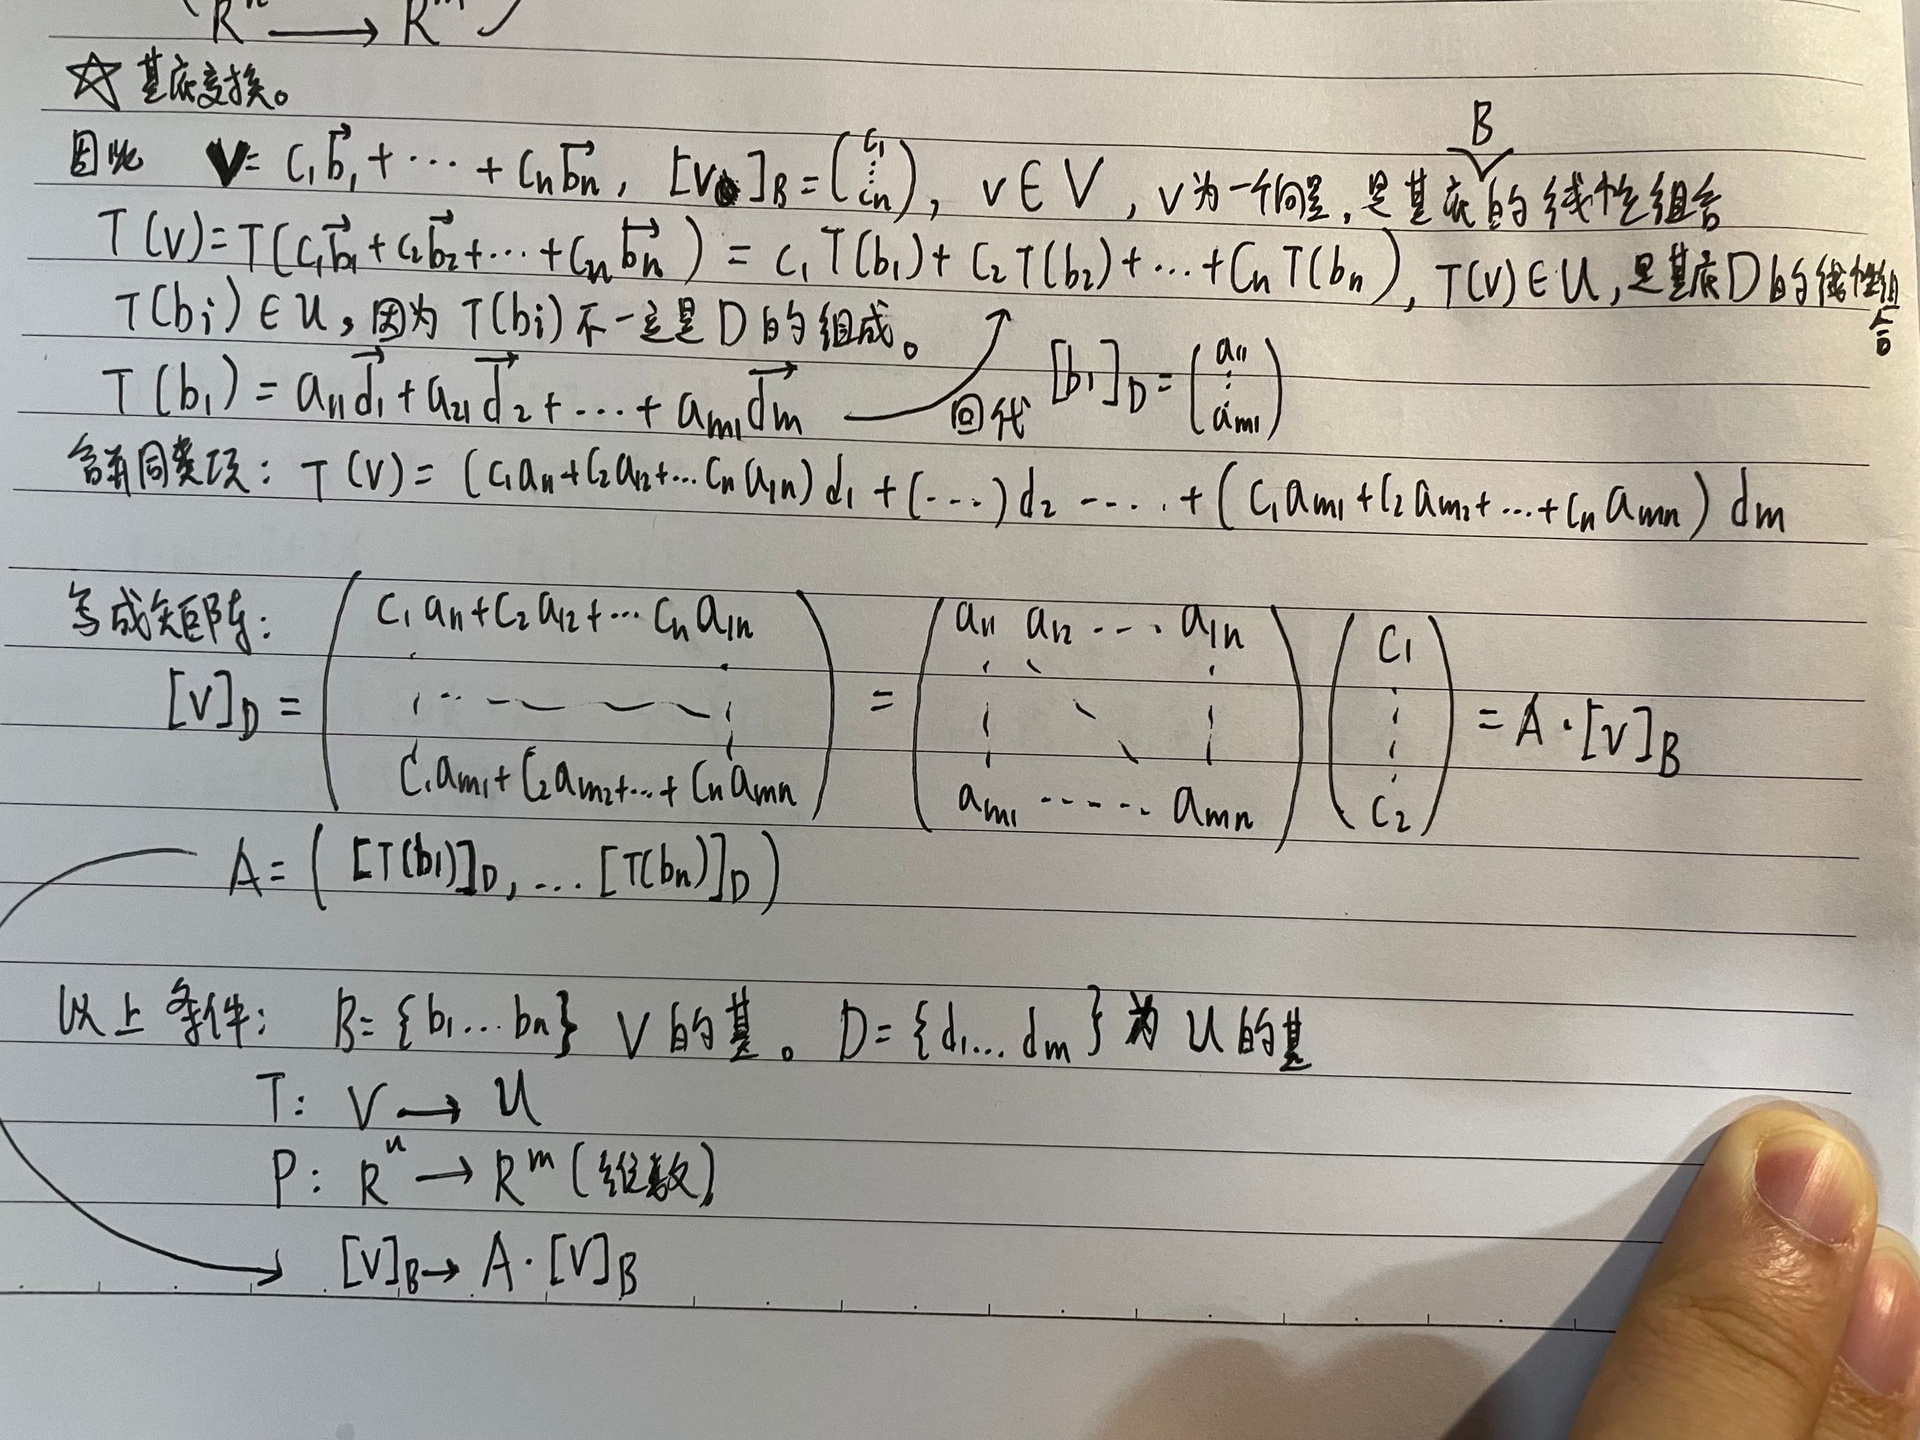 Rⁿ ⟶ Rᵐ
☆ 基底变换。
因此 V = c₁b⃗₁ + ⋯ + cₙb⃗ₙ, [v]_B = (c₁ ⋮ cₙ), v ∈ V, v为一个向量, 是基底的线性组合
B
T(v) = T(c₁b⃗₁ + c₂b⃗₂ + ⋯ + cₙb⃗ₙ) = c₁T(b₁) + c₂T(b₂) + ⋯ + cₙT(bₙ), T(v) ∈ U, 是基底D的线性组合
T(bᵢ) ∈ U, 因为 T(bᵢ) 不一定是 D 的组成。
T(b₁) = a₁₁d⃗₁ + a₂₁d⃗₂ + ⋯ + aₘ₁d⃗ₘ 回代 [b₁]_D = (a₁₁ ⋮ aₘ₁)
合并同类项: T(v) = (c₁a₁₁ + c₂a₁₂ + ⋯ cₙa₁ₙ)d₁ + (⋯)d₂ ⋯⋯ + (c₁aₘ₁ + c₂aₘ₂ + ⋯ + cₙaₘₙ)dₘ
写成矩阵:
[v]_D = (c₁a₁₁ + c₂a₁₂ + ⋯ cₙa₁ₙ ⋮ c₁aₘ₁ + c₂aₘ₂ + ⋯ + cₙaₘₙ) = (a₁₁ a₁₂ ⋯ a₁ₙ ⋮ aₘ₁ ⋯⋯ aₘₙ)(c₁ ⋮ c₂) = A·[v]_B
A = ([T(b₁)]_D, ⋯ [T(bₙ)]_D)
以上条件: B = {b₁⋯bₙ} V的基。 D = {d₁⋯dₘ} 为 U的基
T: V → U
P: Rⁿ → Rᵐ (维数)
[v]_B → A·[v]_B